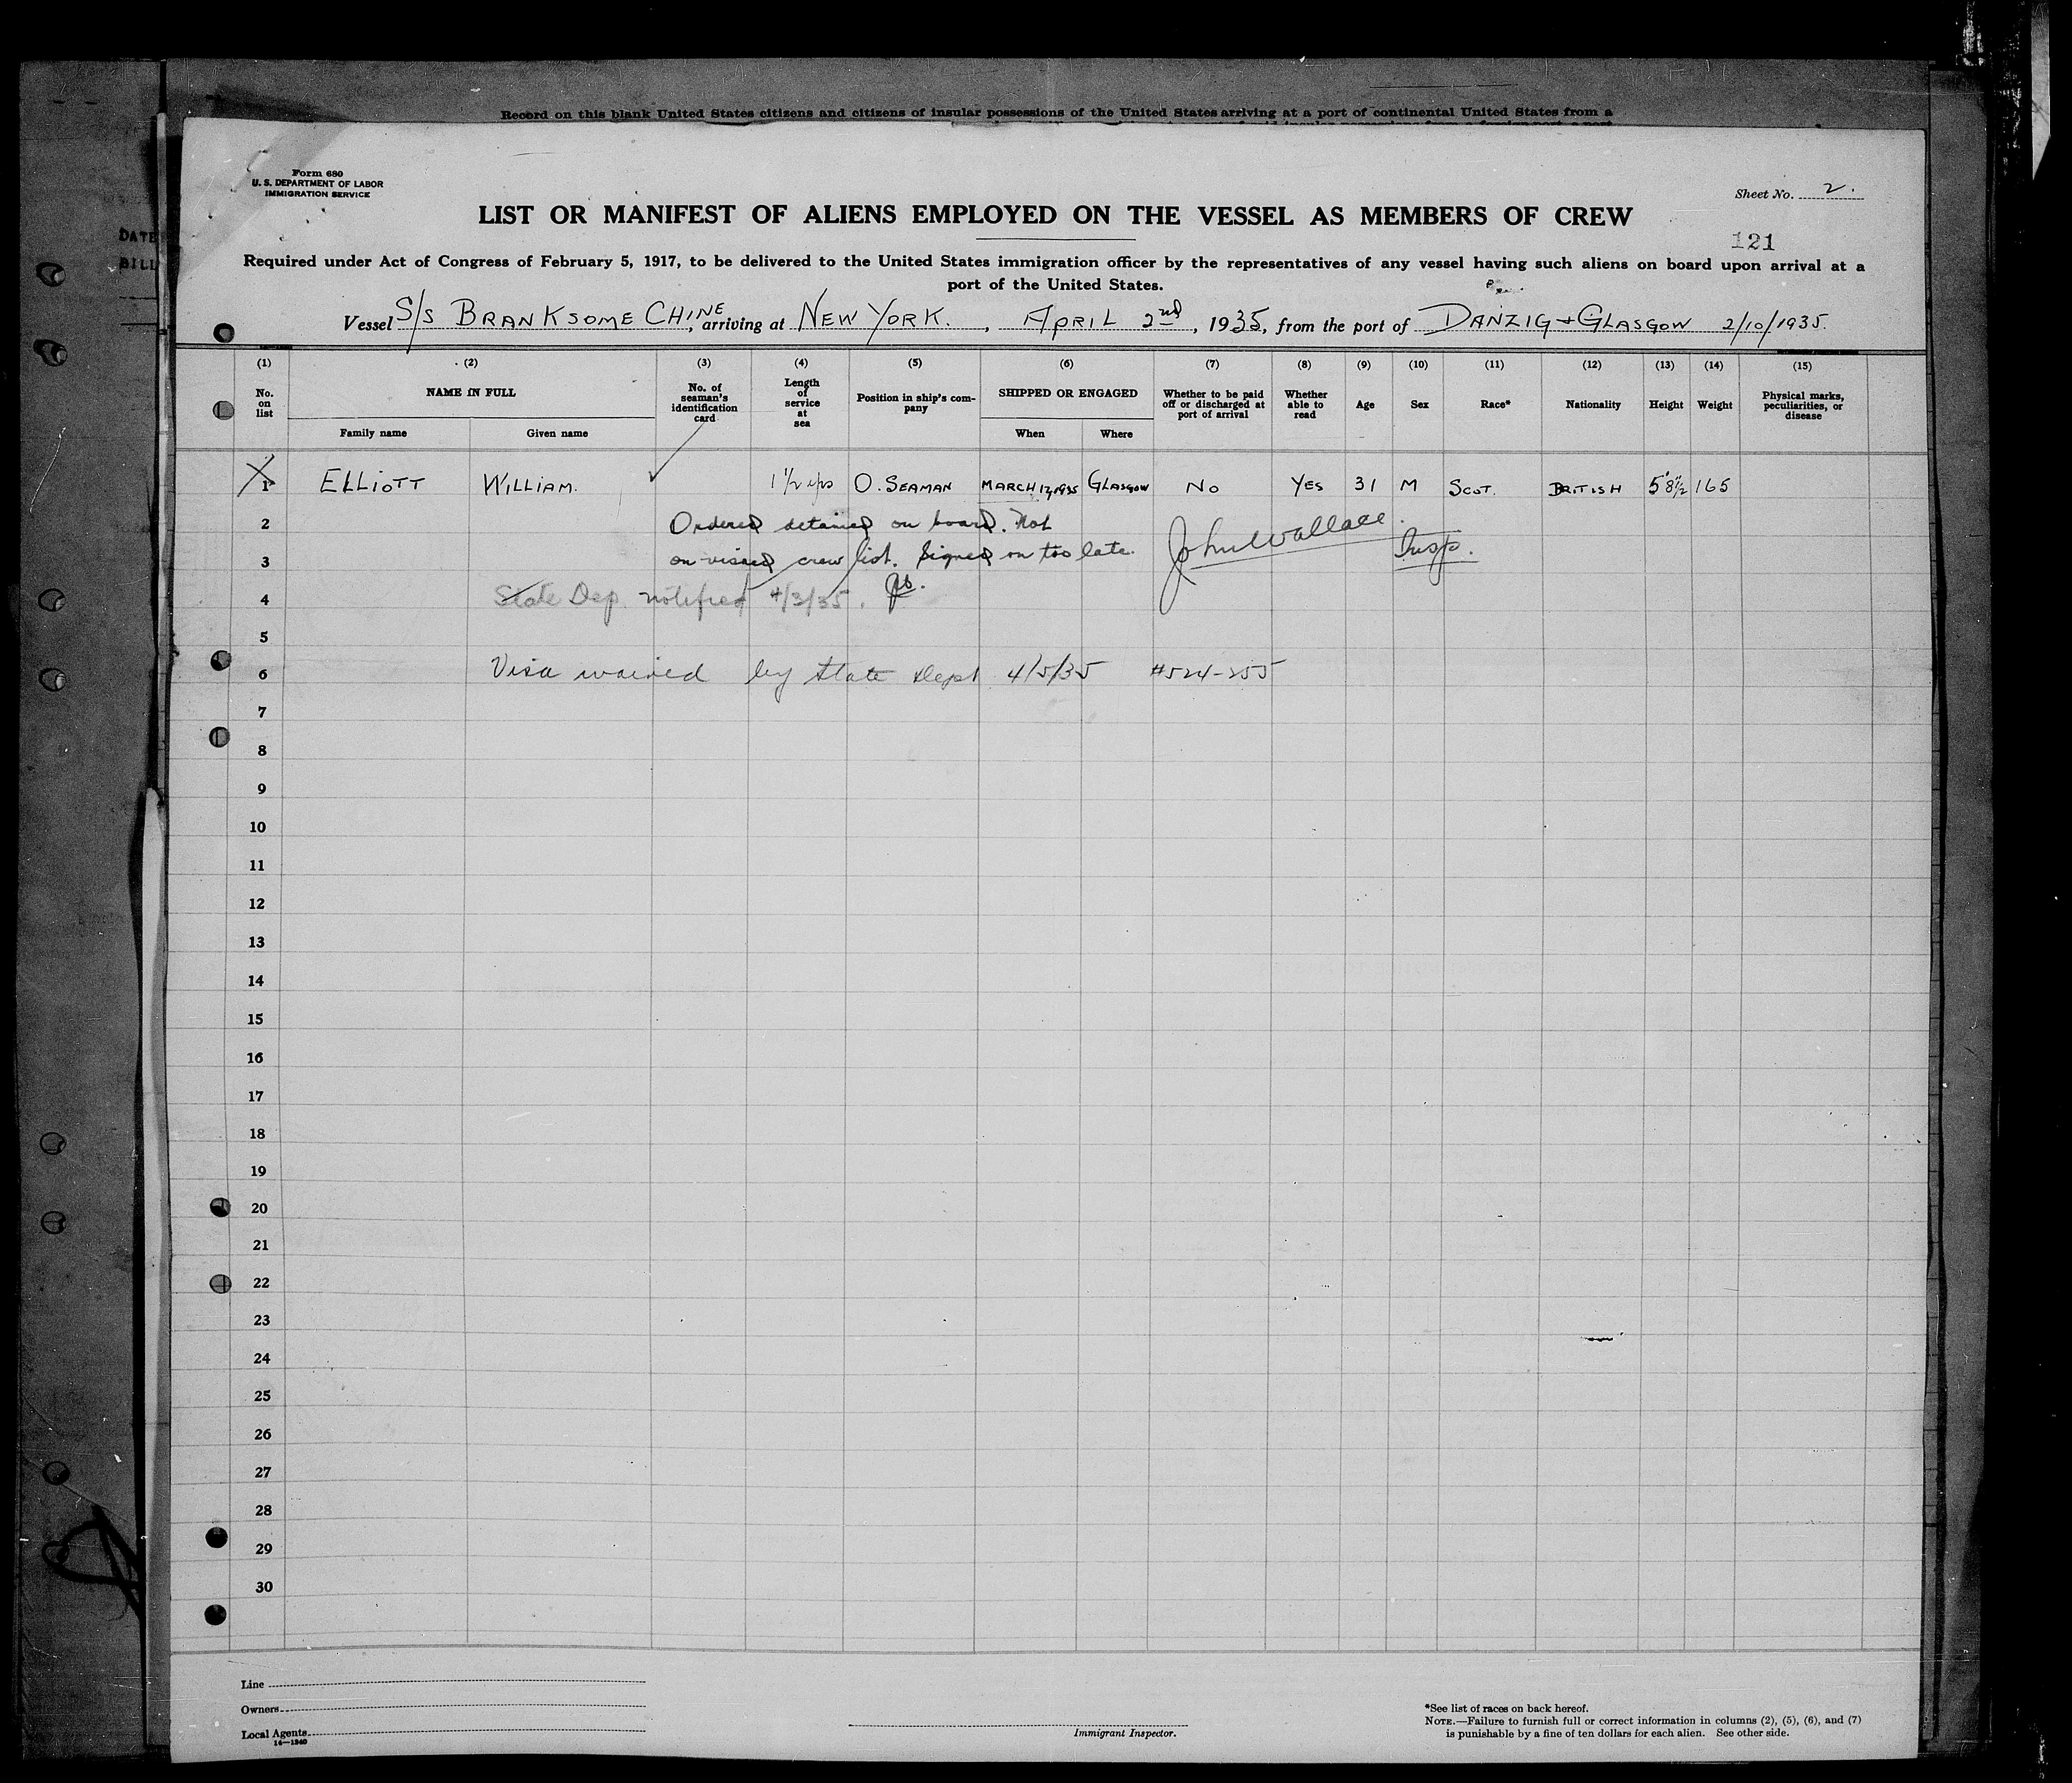 Record on this blank United States citizens and citizens of insular possessions of the United States arriving at a port of continental United States from a
DATE
BILL
Form 680
U. S. DEPARTMENT OF LABOR
IMMIGRATION SERVICE
Sheet No. 2.
LIST OR MANIFEST OF ALIENS EMPLOYED ON THE VESSEL AS MEMBERS OF CREW
121
Required under Act of Congress of February 5, 1917, to be delivered to the United States immigration officer by the representatives of any vessel having such aliens on board upon arrival at a
port of the United States.
Vessel S/S BRANKSOME CHINE, arriving at NEW YORK., APRIL 2nd, 1935, from the port of DANZIG + GLASGOW 2/10/1935.
(1) (2) (3) (4) (5) (6) (7) (8) (9) (10) (11) (12) (13) (14) (15)
No. on list NAME IN FULL No. of seaman's identification card Length of service at sea Position in ship's company SHIPPED OR ENGAGED Whether to be paid off or discharged at port of arrival Whether able to read Age Sex Race* Nationality Height Weight Physical marks, peculiarities, or disease
Family name Given name When Where
1 ELLIOTT WILLIAM. 1 1/2 yrs O. SEAMAN MARCH 17, 1935 GLASGOW NO YES 31 M SCOT. BRITISH 5' 8 1/2" 165
2 Ordered detained on board. Not John Wallace.
3 on visaed crew list. Signed on too late. Insp.
4 State Dep. notified 4/3/35.
5
6 Visa waived by State Dept 4/5/35 #524-255
7
8
9
10
11
12
13
14
15
16
17
18
19
20
21
22
23
24
25
26
27
28
29
30
Line
Owners
Local Agents
14—1240
Immigrant Inspector.
*See list of races on back hereof.
NOTE.—Failure to furnish full or correct information in columns (2), (5), (6), and (7)
is punishable by a fine of ten dollars for each alien. See other side.